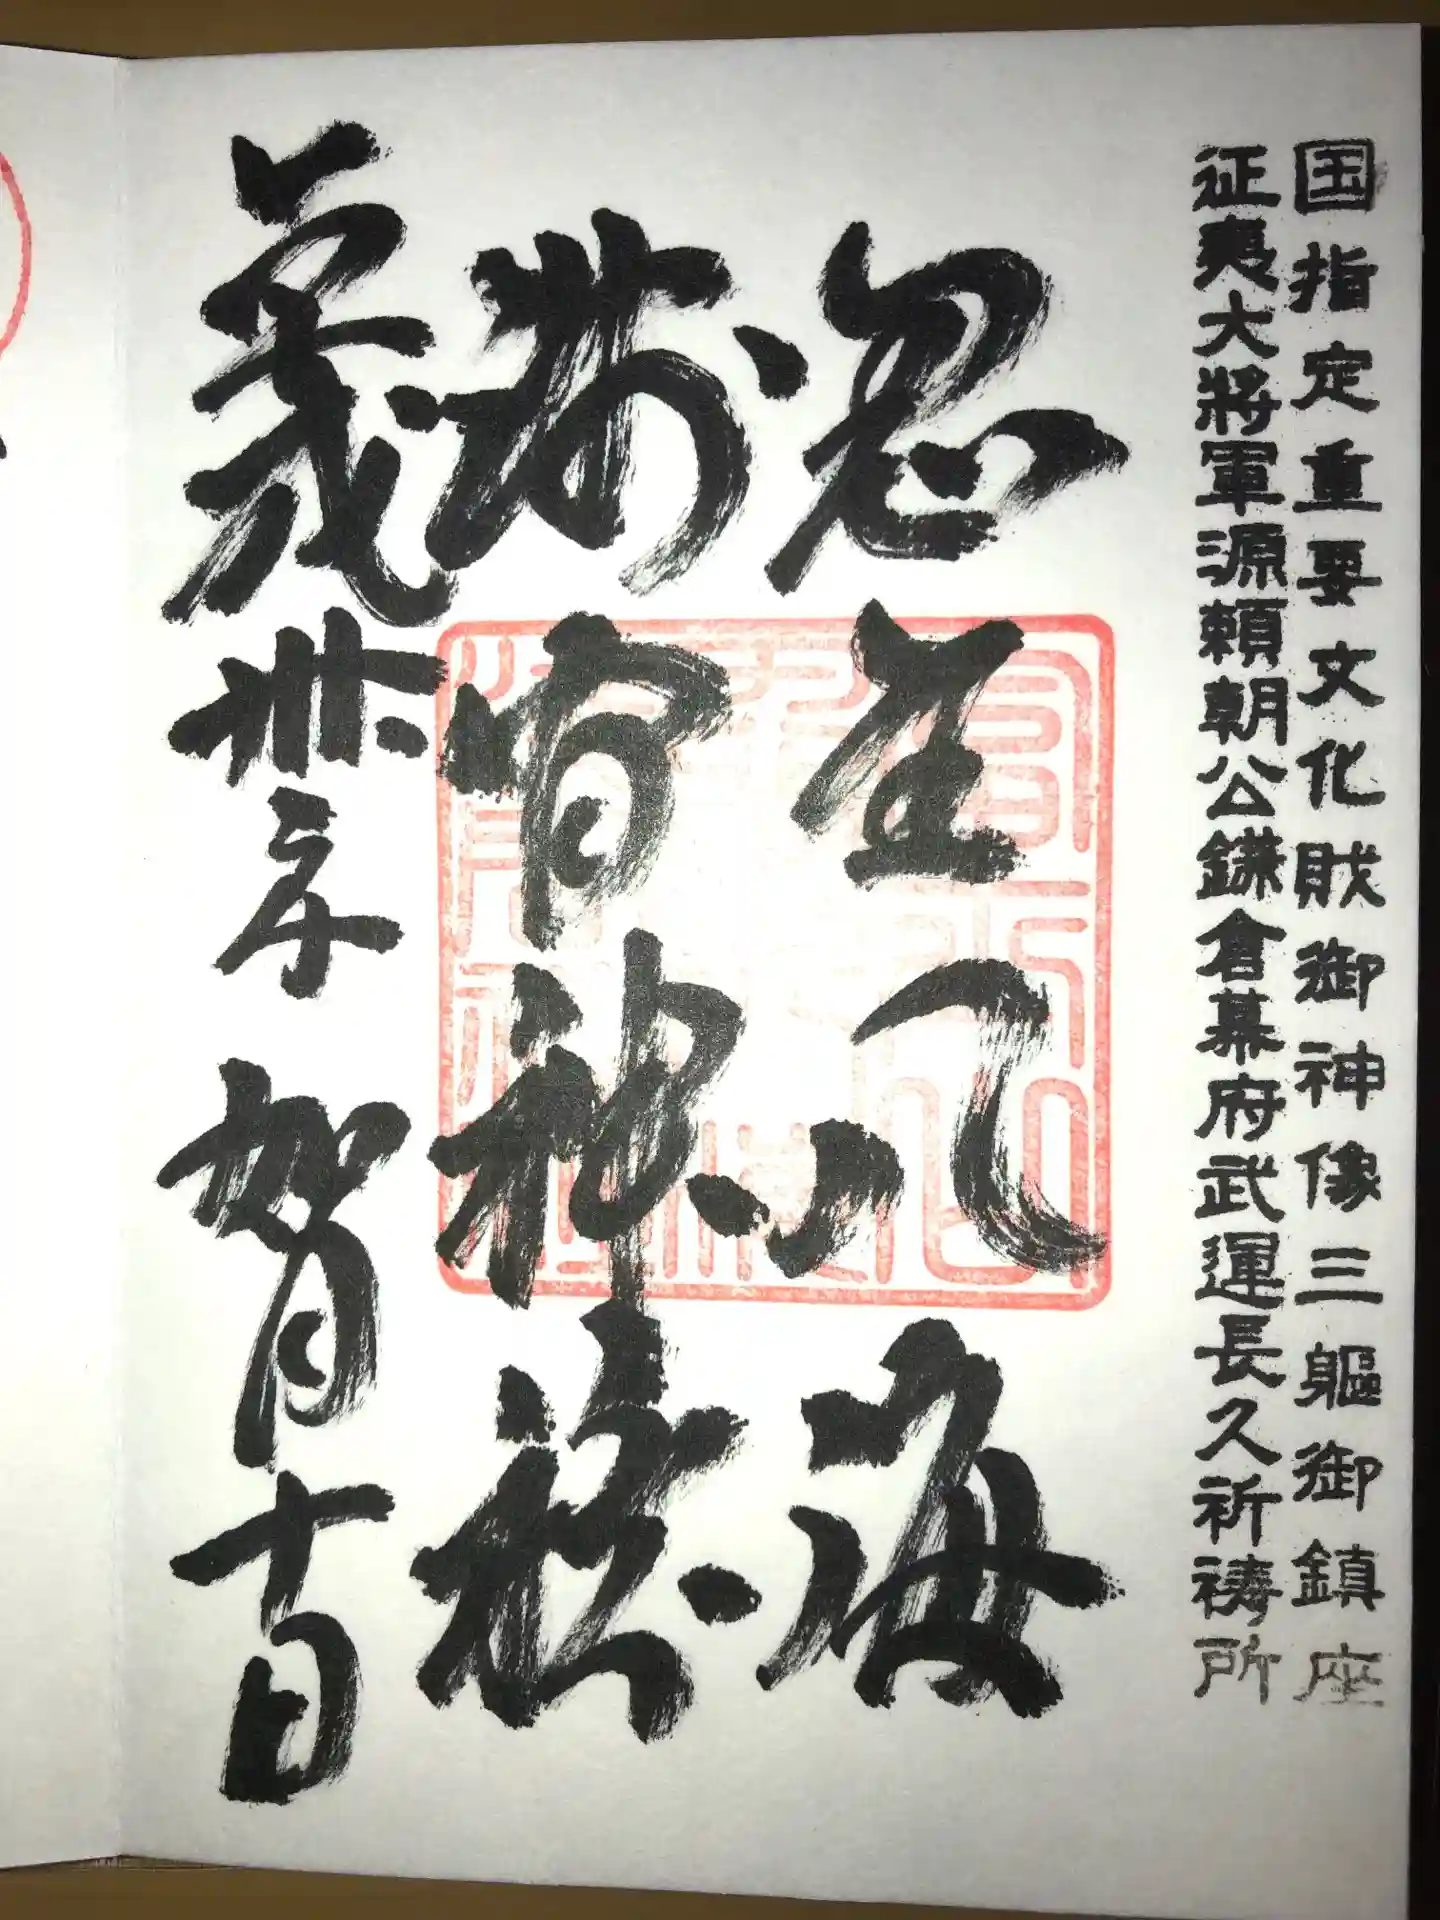 国指定重要文化財御神像三軀御鎮座
征夷大將軍源頼朝公鎌倉幕府武運長久祈祷所
忍 八海
浅間神社
平成卅年 如月十日